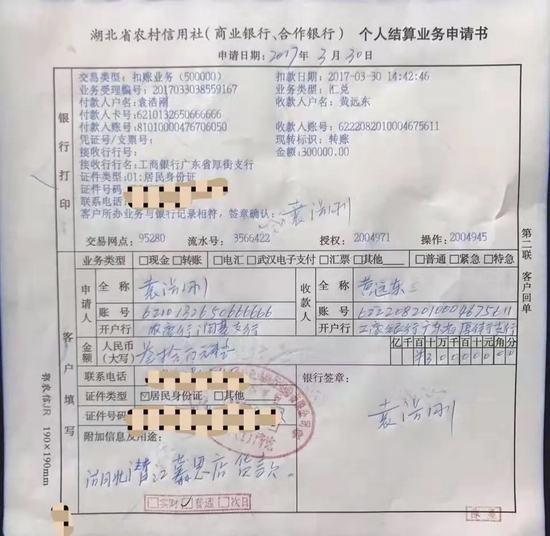 湖北省农村信用社(商业银行、合作银行) 个人结算业务申请书
申请日期:2017年3月30日
银行打印
交易类型:扣账业务(500000) 扣款日期:2017-03-30 14:42:46
业务受理编号:2017033038559167 业务类型:汇兑
付款人户名:袁浩刚 收款人户名:黄远东
付款人卡号:6210132650666666
付款人账号:81010000476706050 收款人账号:6222082010004675611
凭证号/支票号: 现转标识:转账
接收行行号: 金额:300000.00
接收行行名:工商银行广东省厚街支行
证件类型:01:居民身份证
证件号码
联系电话
客户所办业务与银行记录相符,签章确认: 袁浩刚
交易网点: 95280 流水号: 3566422 授权: 2004971 操作: 2004945
第二联 客户回单
客户填写
业务类型 □现金 □转账 □电汇 □武汉电子支付 □汇票 □其他 □普通 □紧急 □特急
申请人 全称 袁浩刚 收款人 全称 黄远东
账号 6210132650666666 账号 6222082010004675611
开户行 开户行 工商银行广东省厚街支行
金额 人民币(大写) 叁拾万元整 亿千百十万千百十元角分
联系电话 银行签章:
证件类型 ☑居民身份证 □其他
证件号码 袁浩刚
附加信息及用途:
湖北潜江 店货款
□实时 ☑普通 □次日
鄂农信JR 190×190mm